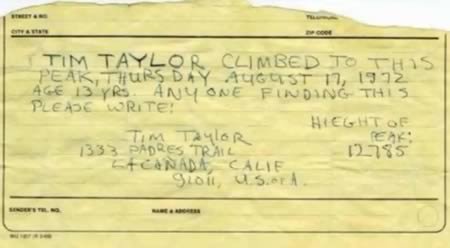 STREET & NO.
CITY & STATE
ZIP CODE
TIM TAYLOR CLIMBED TO THIS
PEAK, THURSDAY AUGUST 17, 1972
AGE 13 YRS. ANY ONE FINDING THIS
PLEASE WRITE!
HIEGHT OF
PEAK:
12785
TIM TAYLOR
1333 PADRES TRAIL
LACANADA, CALIF
91011, U.S.of A.
SENDER'S TEL. NO.
NAME & ADDRESS